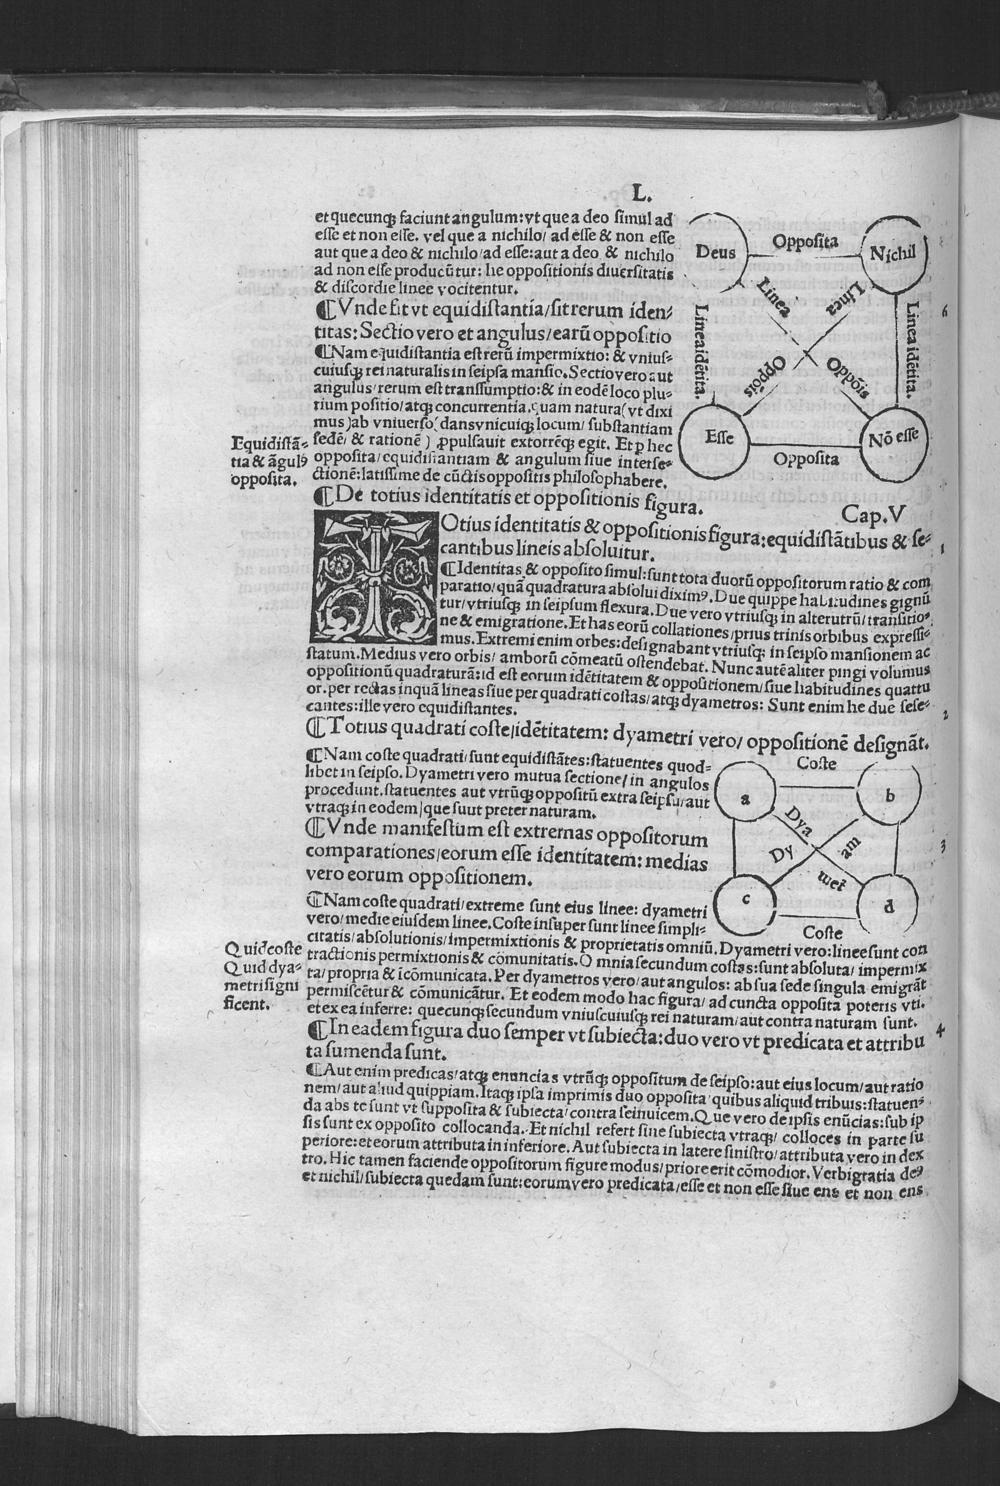 L.
et quecunqꝫ faciunt angulum: vt que a deo simul ad
esse et non esse. vel que a nichilo/ ad esse & non esse
aut que a deo & nichilo/ ad esse: aut a deo & nichilo
ad non esse producūtur: he oppositionis diuersitatis
& discordie linee vocitentur.
¶Vnde fit vt equidistantia/ sit rerum iden⸗
titas: Sectio vero et angulus/ earū oppositio
¶Nam equidistantia est rerū impermixtio: & vnius⸗
cuiusqꝫ rei naturalis in seipsa mansio. Sectio vero aut
angulus/ rerum est transsumptio: & in eodē loco plu⸗
rium positio/ atqꝫ concurrentia. quam natura (vt dixi
mus) ab vniuerso (dans vnicuiqꝫ locum/ substantiam
sedē/ & rationē) ꝓpulsauit extorrēqꝫ egit. Et ꝑ hec
opposita/ equidistantiam & angulum siue interse⸗
ctionē: latissime de cūctis oppositis philosophabere.
Equidistā⸗
tia & āgulꝰ
opposita.
Deus
Opposita
Nichil
Linea
Linea
Linea idētita.
Linea idētita.
Oppōis
Oppōis
Esse
Opposita
Nō esse
6
¶De totius identitatis et oppositionis figura.
Cap. V
TOtius identitatis & oppositionis figura: equidistātibus & se⸗
cantibus lineis absoluitur.
1
¶Identitas & opposito simul: sunt tota duorū oppositorum ratio & com
paratio/ quā quadratura absolui diximꝰ. Due quippe habitudines gignū
tur/ vtriusqꝫ in seipsum flexura. Due vero vtriusqꝫ in alterutrū/ transitio⸗
ne & emigratione. Et has eorū collationes/ prius trinis orbibus expressi⸗
mus. Extremi enim orbes: designabant vtriusqꝫ in seipso mansionem ac
statum. Medius vero orbis/ amborū cōmeatū ostendebat. Nunc autē aliter pingi volumus
oppositionū quadraturā: id est eorum idētitatem & oppositionem/ siue habitudines quattu
or. per rectas inquā lineas siue per quadrati costas/ atqꝫ dyametros: Sunt enim he due sese⸗
cantes: ille vero equidistantes.
2
¶Totius quadrati coste/ idētitatem: dyametri vero/ oppositionē designāt.
¶Nam coste quadrati/ sunt equidistātes: statuentes quod⸗
libet in seipso. Dyametri vero mutua sectione/ in angulos
procedunt. statuentes aut vtrūqꝫ oppositū extra seipsu/ aut
vtraqꝫ in eodem/ que suut preter naturam.
¶Vnde manifestum est extremas oppositorum
comparationes/ eorum esse identitatem: medias
vero eorum oppositionem.
Coste
a
b
Dya
Dy
am
met
c
d
Coste
3
¶Nam coste quadrati/ extreme sunt eius linee: dyametri
vero/ medie eiusdem linee. Coste insuper sunt linee simpli⸗
citatis/ absolutionis/ impermixtionis & proprietatis omniū. Dyametri vero: linee sunt con
tractionis permixtionis & cōmunitatis. Omnia secundum costas: sunt absoluta/ impermix
ta/ propria & īcōmunicata. Per dyametros vero/ aut angulos: ab sua sede singula emigrāt
permiscētur & cōmunicātur. Et eodem modo hac figura/ ad cuncta opposita poteris vti.
et ex ea inferre: quecunqꝫ secundum vniuscuiusqꝫ rei naturam/ aut contra naturam sunt.
Quid coste
Quid dya⸗
metri signi
ficent.
4
¶In eadem figura duo semper vt subiecta: duo vero vt predicata et attribu
ta sumenda sunt.
¶Aut enim predicas/ atqꝫ enuncias vtrūqꝫ oppositum de seipso: aut eius locum/ aut ratio
nem/ aut aliud quippiam. Itaqꝫ ipsa imprimis duo opposita quibus aliquid tribuis: statuen⸗
da abs te sunt vt supposita & subiecta/ contra seinuicem. Que vero de ipsis enūcias: sub ip
sis sunt ex opposito collocanda. Et nichil refert sine subiecta vtraqꝫ/ colloces in parte su
periore: et eorum attributa in inferiore. Aut subiecta in latere sinistro/ attributa vero in dex
tro. Hic tamen faciende oppositorum figure modus/ priore erit cōmodior. Verbigratia deꝰ
et nichil/ subiecta quedam sunt: eorum vero predicata/ esse et non esse siue ens et non ens